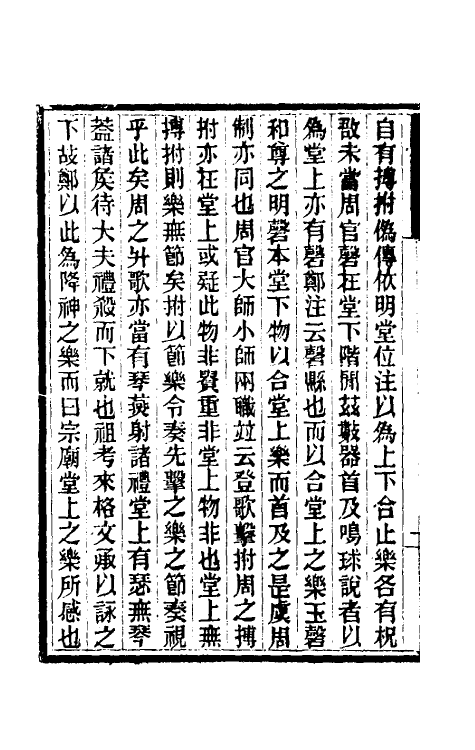 自有搏拊僞傳依明堂位注以爲上下合止樂各有柷
敔未當周官磬在堂下階閒茲數器首及鳴球說者以
爲堂上亦有磬鄭注云磬縣也而以合堂上之樂玉磬
和尊之明磬本堂下物以合堂上樂而首及之是虞周
制亦同也周官大師小師兩職竝云登歌擊拊周之搏
拊亦在堂上或疑此物非貴重非堂上物非也堂上無
搏拊則樂無節矣拊以節樂令奏先擊之樂之節奏視
乎此矣周之升歌亦當有琴燕射諸禮堂上有瑟無琴
葢諸矦待大夫禮殺而下就也祖考來格文承以詠之
下故鄭以此爲降神之樂而曰宗廟堂上之樂所感也